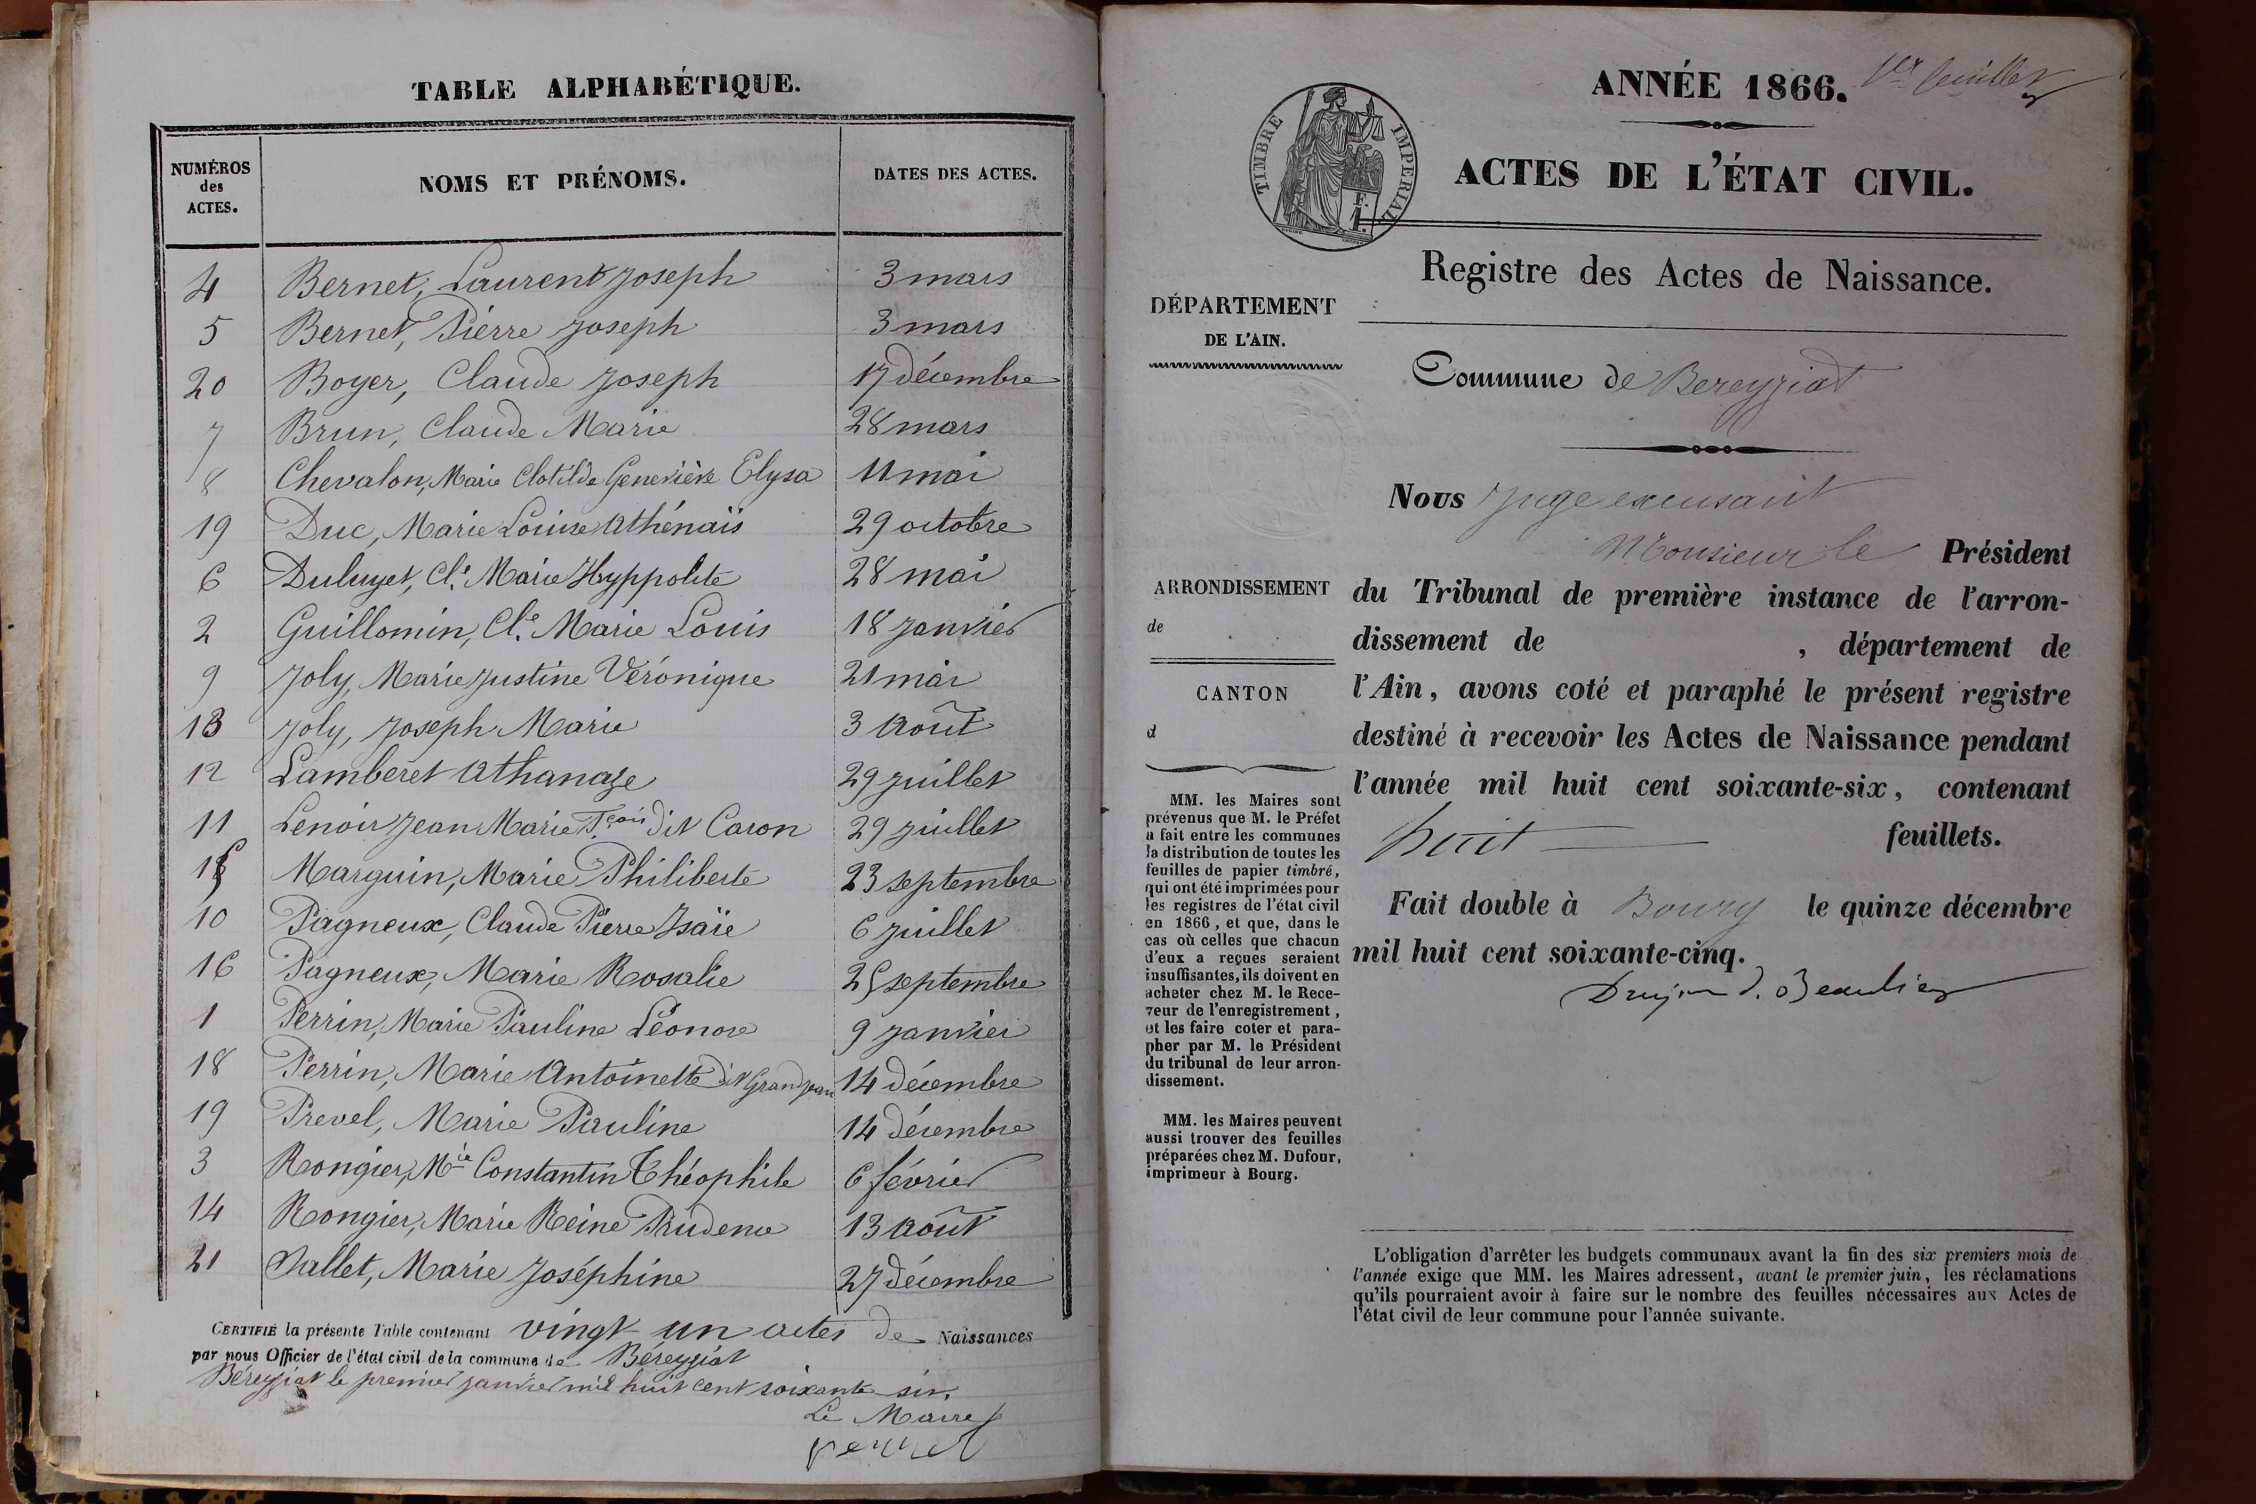 TABLE ALPHABÉTIQUE.
NUMÉROS des ACTES. NOMS ET PRÉNOMS. DATES DES ACTES.
4 Bernet, Laurent Joseph 3 mars
5 Bernet, Pierre Joseph 3 mars
20 Boyer, Claude Joseph 17 décembre
7 Brun, Claude Marie 28 mars
8 Chevalon, Marie Clotilde Geneviève Elysa 11 mai
19 Duc, Marie Louise Athénaïs 29 octobre
6 Duluyet, Cl. Marie Hyppolite 28 mai
2 Guillomin, Cl.e Marie Louis 18 janvier
9 Joly, Marie Justine Véronique 21 mai
13 Joly, Joseph Marie 3 août
12 Lamberet Athanaze 29 juillet
11 Lenoir Jean Marie F.çois dit Caron 29 juillet
15 Marguin, Marie Philiberte 23 septembre
10 Pagneux, Claude Pierre Isaïe 6 juillet
16 Pagneux, Marie Rosalie 25 septembre
1 Perrin, Marie Pauline Léonore 9 janvier
18 Perrin, Marie Antoinette dit Grandjean 14 décembre
19 Prevel, Marie Pauline 14 décembre
3 Rongier, Mie Constantin Théophile 6 février
14 Rongier, Marie Reine Prudence 13 août
21 Sallet, Marie Joséphine 27 décembre
CERTIFIÉ la présente Table contenant vingt un actes de Naissances
par nous Officier de l'état civil de la commune de Béreyziat
Béreyziat le premier janvier mil huit cent soixante six.
Le Maire
ANNÉE 1866. 1er feuillet
TIMBRE IMPERIAL
1 F.
ACTES DE L'ÉTAT CIVIL.
Registre des Actes de Naissance.
DÉPARTEMENT
DE L'AIN.
Commune de Bereyziat
Nous Juge excusant
Monsieur le Président
du Tribunal de première instance de l'arron-
dissement de , département de
l'Ain, avons coté et paraphé le présent registre
destiné à recevoir les Actes de Naissance pendant
l'année mil huit cent soixante-six, contenant
huit feuillets.
Fait double à Bourg le quinze décembre
mil huit cent soixante-cinq.
ARRONDISSEMENT
de
CANTON
d
MM. les Maires sont
prévenus que M. le Préfet
a fait entre les communes
la distribution de toutes les
feuilles de papier timbré,
qui ont été imprimées pour
les registres de l'état civil
en 1866, et que, dans le
cas où celles que chacun
d'eux a reçues seraient
insuffisantes, ils doivent en
acheter chez M. le Rece-
veur de l'enregistrement,
et les faire coter et para-
pher par M. le Président
du tribunal de leur arron-
dissement.
MM. les Maires peuvent
aussi trouver des feuilles
préparées chez M. Dufour,
imprimeur à Bourg.
L'obligation d'arrêter les budgets communaux avant la fin des six premiers mois de
l'année exige que MM. les Maires adressent, avant le premier juin, les réclamations
qu'ils pourraient avoir à faire sur le nombre des feuilles nécessaires aux Actes de
l'état civil de leur commune pour l'année suivante.